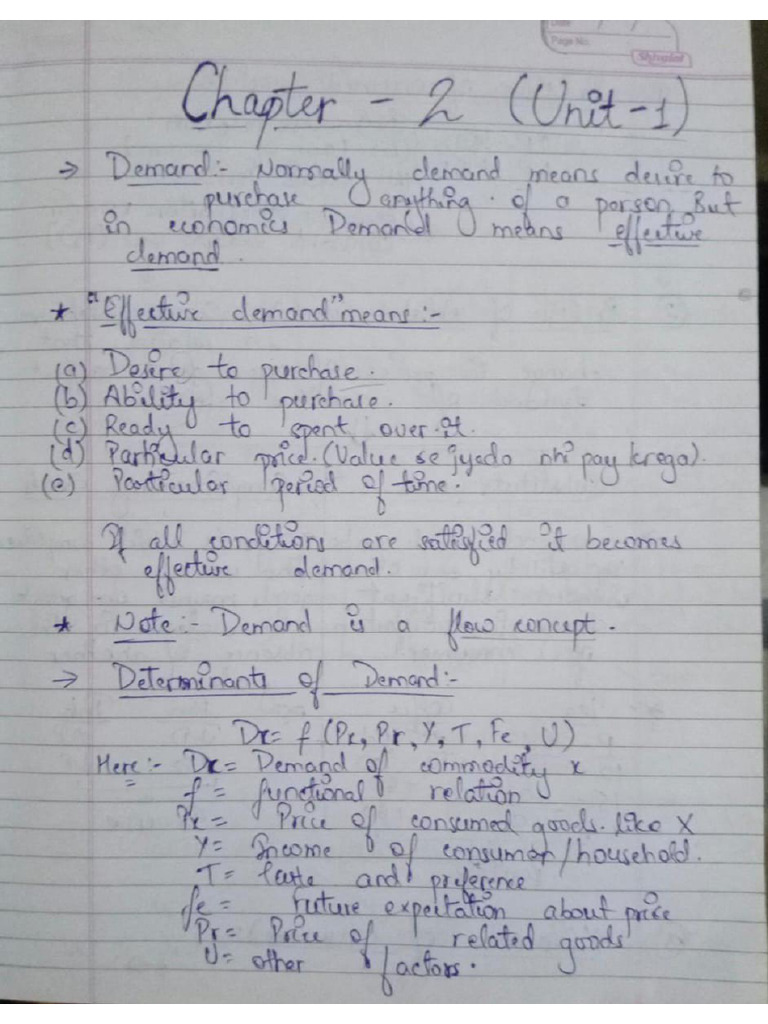 Page No:
Chapter - 2 (Unit-1)
→ Demand:- Normally demand means desire to
purchase anything. of a person. But
in economics Demand means effective
demand.
* "Effective demand" means:-
(a) Desire to purchase.
(b) Ability to purchase.
(c) Ready to spent over it.
(d) Particular price. (Value se jyada nhi pay krega).
(e) Particular period of time.
If all conditions are satisfied it becomes
effective demand.
* Note:- Demand is a flow concept.
→ Determinants of Demand:-
Dx= f (Px, Pr, Y, T, Fe, U)
Here:- Dx= Demand of commodity x
f = functional relation
Px= Price of consumed goods. like X
Y= Income of consumer/household.
T= taste and preference
fe= future expectation about price
Pr= Price of related goods
U= other factors.